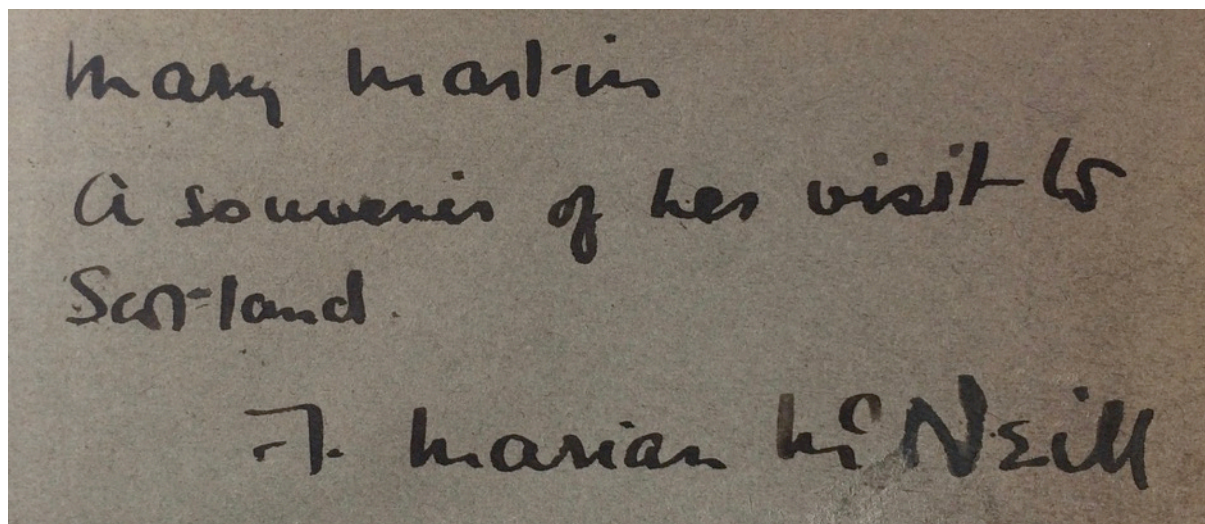 Mary Martin
A souvenir of her visit to
Scotland.
F. Marian McNeill